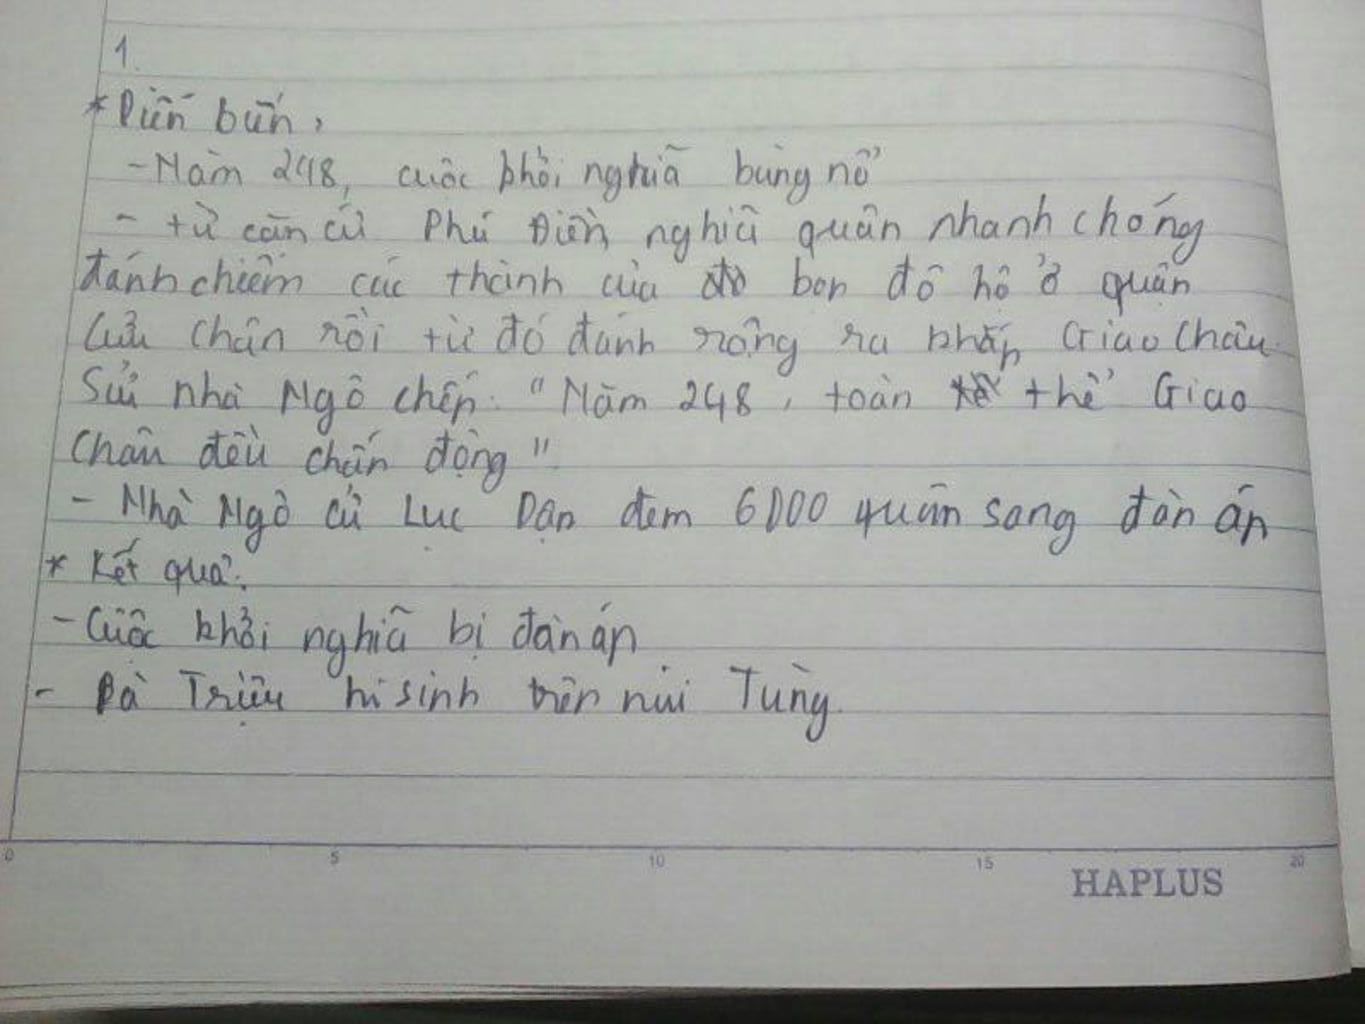 1.
* Diễn biến,
- Năm 248, cuộc khởi nghĩa bùng nổ
- từ căn cứ Phú Điền, nghĩa quân nhanh chóng
đánh chiếm các thành của bọn đô hộ ở quận
Cửu Chân rồi từ đó đánh rộng ra khắp Giao Châu.
Sử nhà Ngô chép: "Năm 248, toàn thể Giao
Châu đều chấn động"
- Nhà Ngô cử Lục Dận đem 6000 quân sang đàn áp
* Kết quả:
- Cuộc khởi nghĩa bị đàn áp
- Bà Triệu hi sinh trên núi Tùng.
0 5 10 15 20
HAPLUS